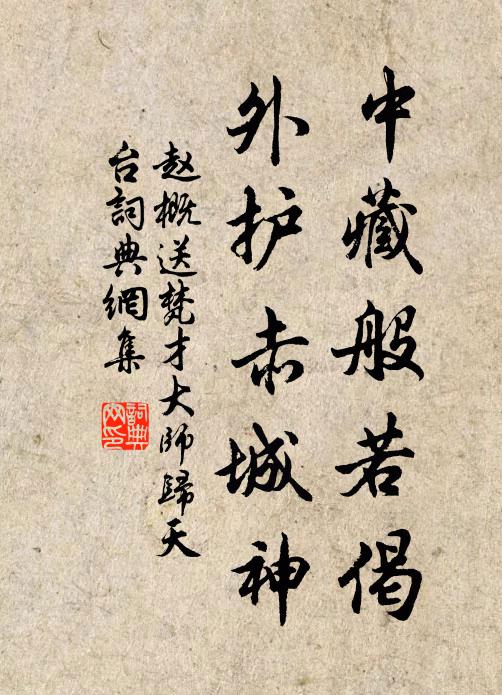 中藏般若偈
外护赤城神
赵概送梵才大师歸天
台詞典網集
詞典网印